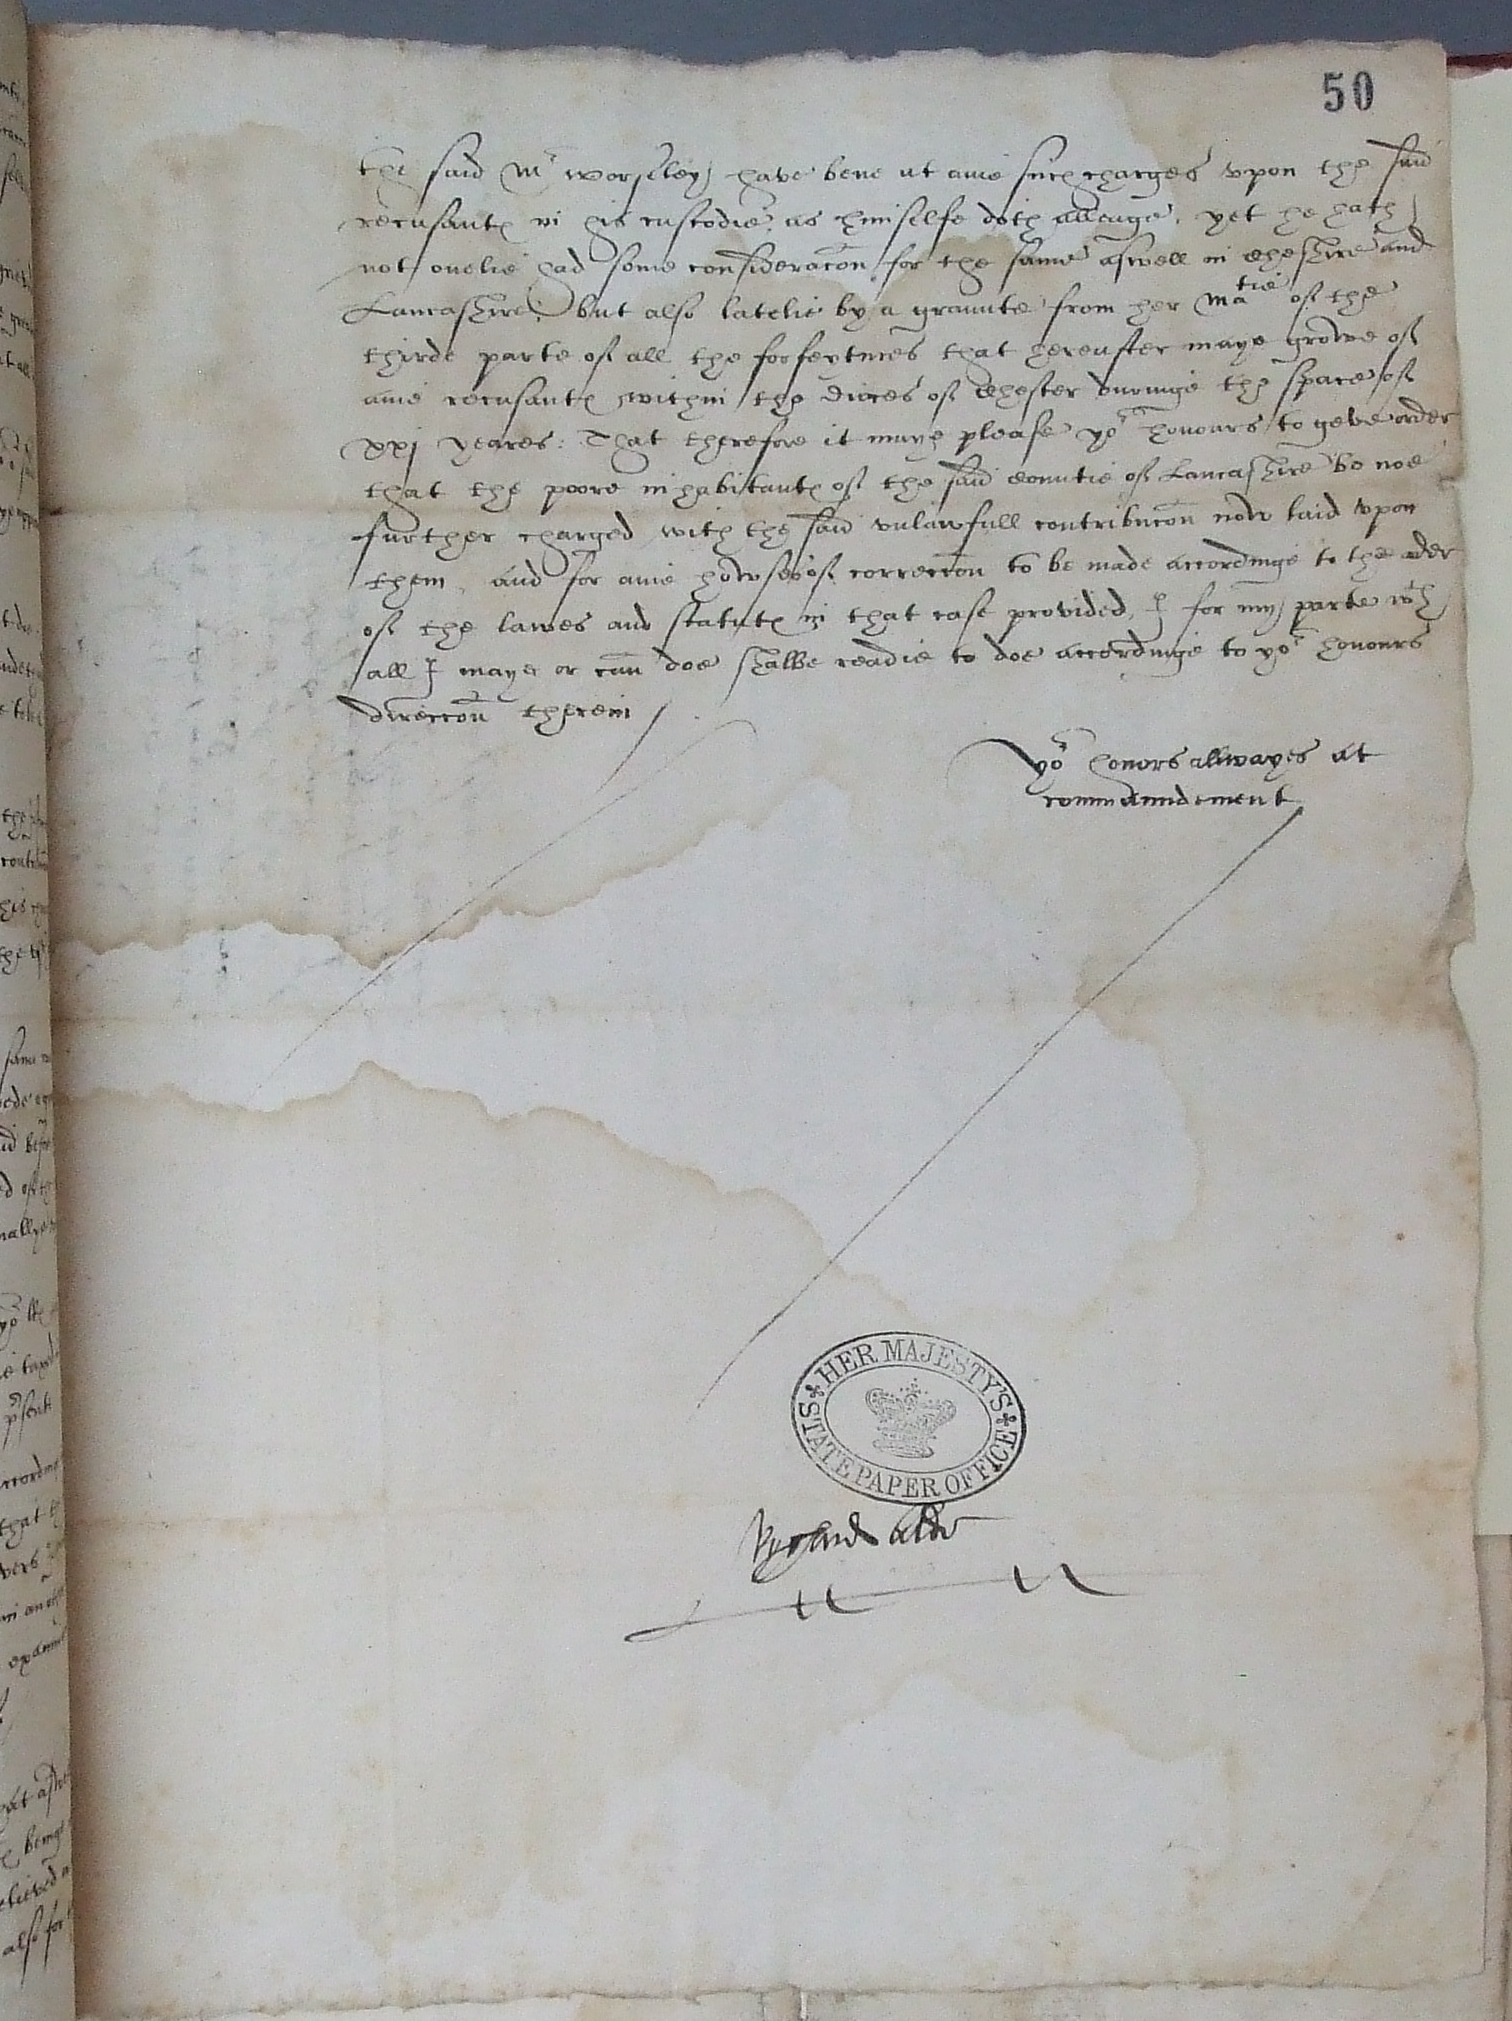 50
the said Mr worseley have bene at anie such charges vpon the said
recusantes in his custodie as himselfe doth alleage, yet he hath
not onelie had some consideracon for the same aswell in Cheshire and
Lancashire, but also latelie by a graunte from her Matie of the
thirde parte of all the forfeytures that hereafter maye growe of
anie recusantes within the dioces of Chester duringe the space of
xxj yeares: That therefore it maye please yor honours to geve order
that the poore inhabitantes of the said Countie of Lancashire be noe
further charged with the said vnlawfull contribucon now laid vpon
them, and for anie howses of correccon to be made accordinge to the order
of the lawes and statutes in that case provided, I for my parte wth
all I maye or cann doe shalbe readie to doe accordinge to yor honours
direccon therein
yor honors allwayes at
commaundement
HER MAJESTY'S
STATE PAPER OFFICE